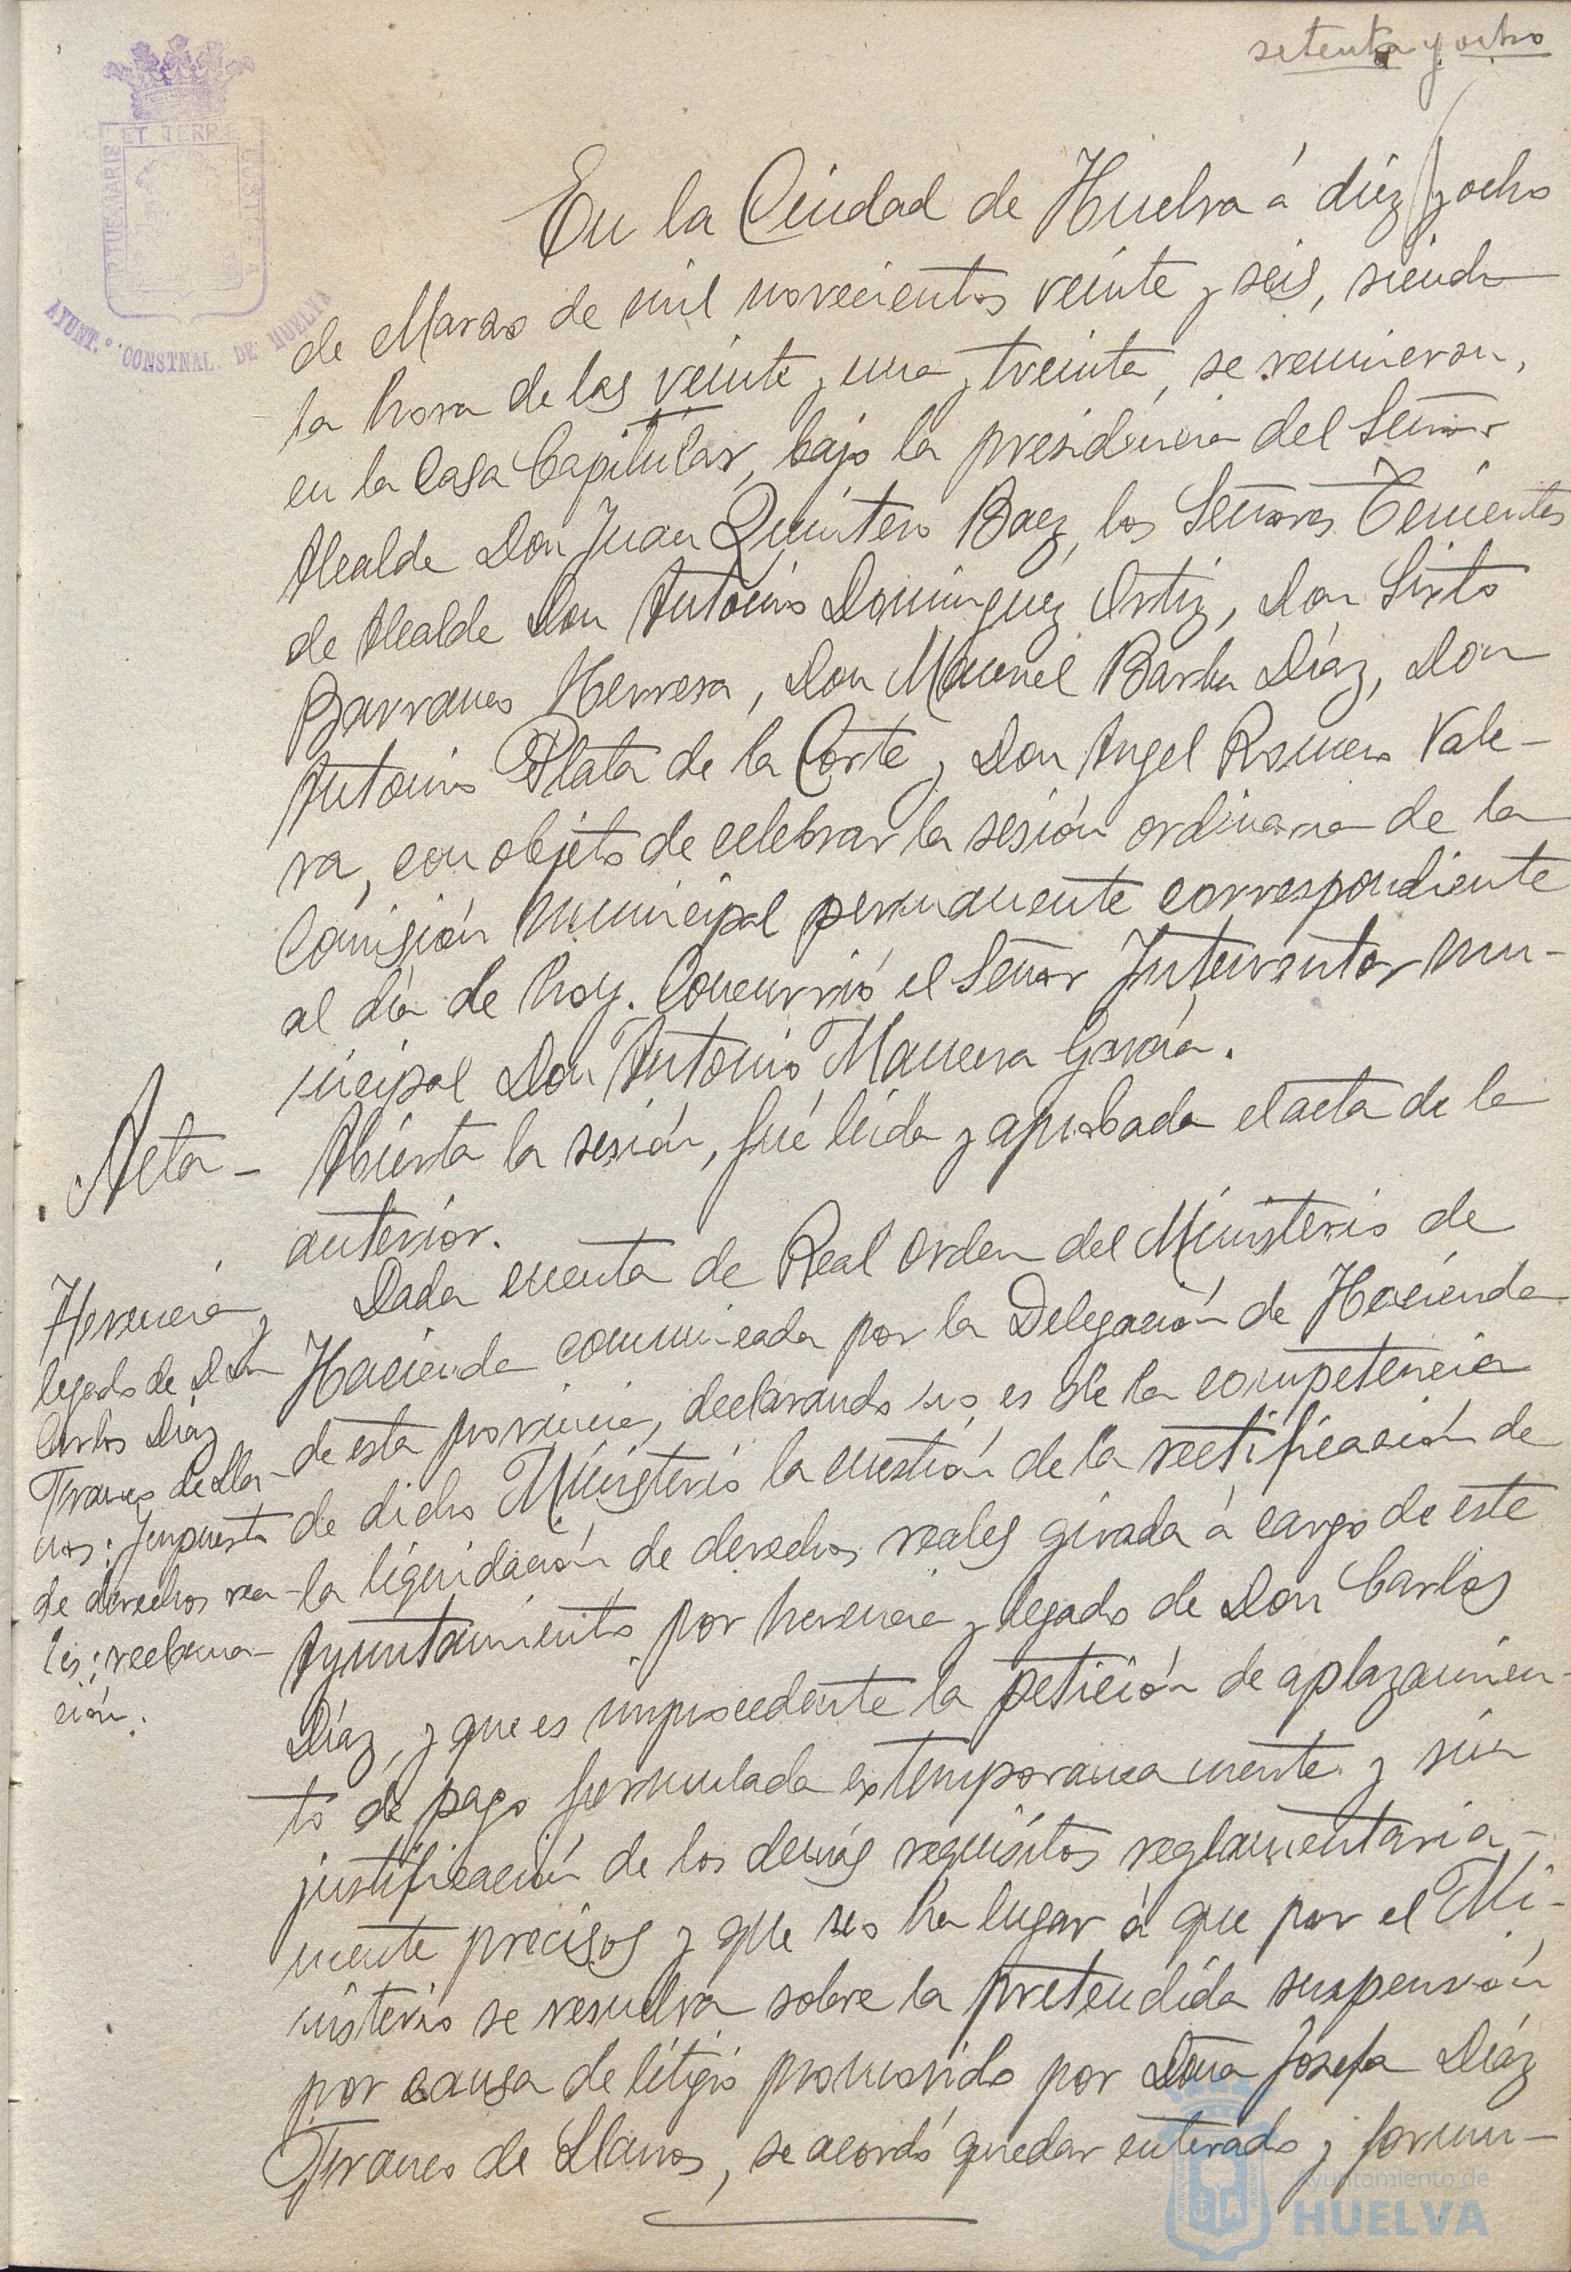 setenta y ocho
PORTUS MARIS ET TERRÆ CUSTODIA
AYUNT.º CONSTNAL. DE HUELVA
En la Ciudad de Huelva á diez y ocho
de Marzo de mil novecientos veinte y seis, siendo
la hora de las veinte y una y treinta, se reunieron,
en la Casa Capitular, bajo la presidencia del Señor
Alcalde Don Juan Quintero Baez, los Señores Tenientes
de Alcalde Don Antonio Dominguez Ortiz, Don Sixto
Barranco Herrera, Don Manuel Barba Díaz, Don
Antonio Plata de la Corte y Don Angel Romero Vale-
ra, con objeto de celebrar la sesión ordinaria de la
Comisión municipal permanente correspondiente
al día de hoy. Concurrió el Señor Interventor mu-
nicipal Don Antonio Manuera García.
Acta-
Abierta la sesión, fué leída y aprobada el acta de la
anterior.
Herencia y
legado de Don
Carlos Díaz
Franco de Lla-
nos: Impuesto
de derechos rea-
les; reclama-
ción.
Dada cuenta de Real Orden del Ministerio de
Hacienda comunicada por la Delegación de Hacienda
de esta provincia, declarando no es de la competencia
de dicho Ministerio la cuestión de la rectificación de
la liquidación de derechos reales girada á cargo de este
Ayuntamiento por herencia y legado de Don Carlos
Díaz, y que es improcedente la petición de aplazamien-
to de pago formulada extemporaneamente y sin
justificación de los demás requisitos reglamentaria-
mente precisos y que no ha lugar á que por el Mi-
nisterio se resuelva sobre la pretendida suspensión
por causa de litigio promovido por Doña Josefa Díaz
Franco de Llanos, se acordó quedar enterado y formu-
Ayuntamiento de
HUELVA